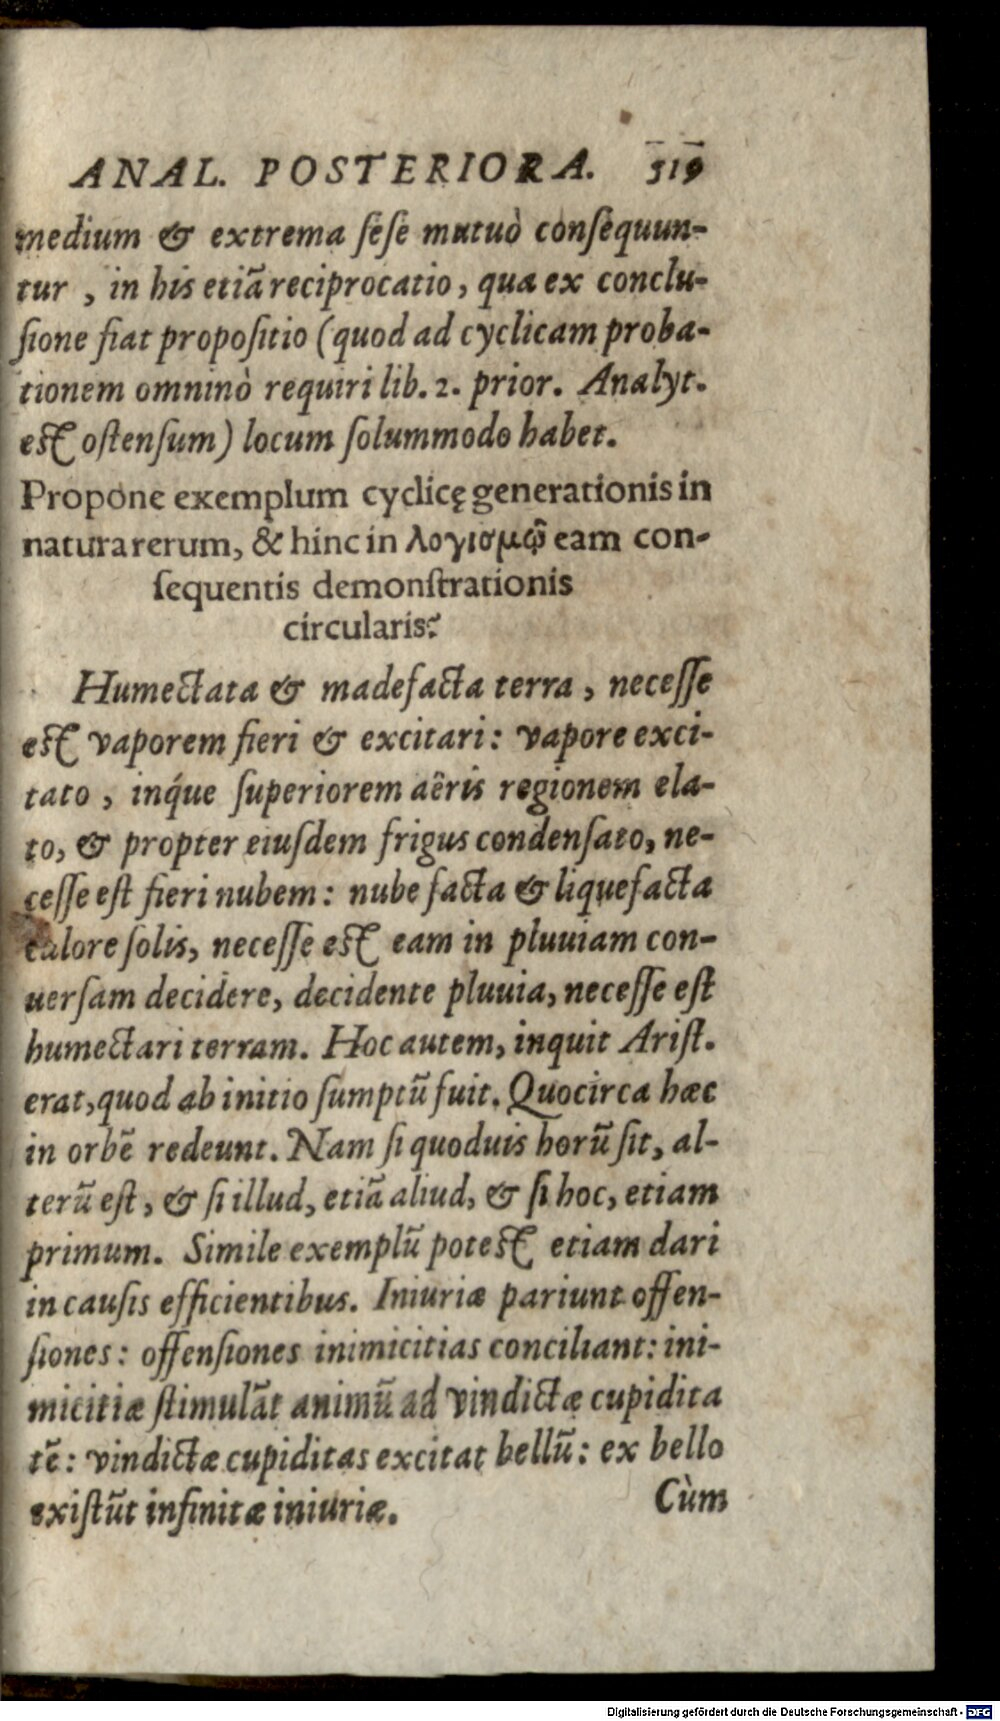 ANAL. POSTERIORA. 319
medium & extrema ſeſe mutuò conſequun-
tur, in his etiā reciprocatio, qua ex conclu-
ſione fiat propoſitio (quod ad cyclicam proba-
tionem omninò requiri lib. 2. prior. Analyt.
eſt oſtenſum) locum ſolummodo habet.
Propone exemplum cyclicę generationis in
natura rerum, & hinc in λογισμῷ eam con-
ſequentis demonſtrationis
circularis?
Humectata & madefacta terra, neceſſe
eſt vaporem fieri & excitari: vapore exci-
tato, inq́ue ſuperiorem aëris regionem ela-
to, & propter eiuſdem frigus condenſato, ne-
ceſſe eſt fieri nubem: nube facta & liquefacta
calore ſolis, neceſſe eſt eam in pluuiam con-
uerſam decidere, decidente pluuia, neceſſe eſt
humectari terram. Hoc autem, inquit Ariſt.
erat, quod ab initio ſumptū fuit. Quocirca hæc
in orbē redeunt. Nam ſi quoduis horū ſit, al-
terū eſt, & ſi illud, etiā aliud, & ſi hoc, etiam
primum. Simile exemplū poteſt etiam dari
in cauſis efficientibus. Iniuriæ pariunt offen-
ſiones: offenſiones inimicitias conciliant: ini-
micitiæ ſtimulāt animū ad vindictæ cupidita
tē: vindictæ cupiditas excitat bellū: ex bello
exiſtūt infinitæ iniuriæ. Cùm
Digitalisierung gefördert durch die Deutsche Forschungsgemeinschaft - DFG